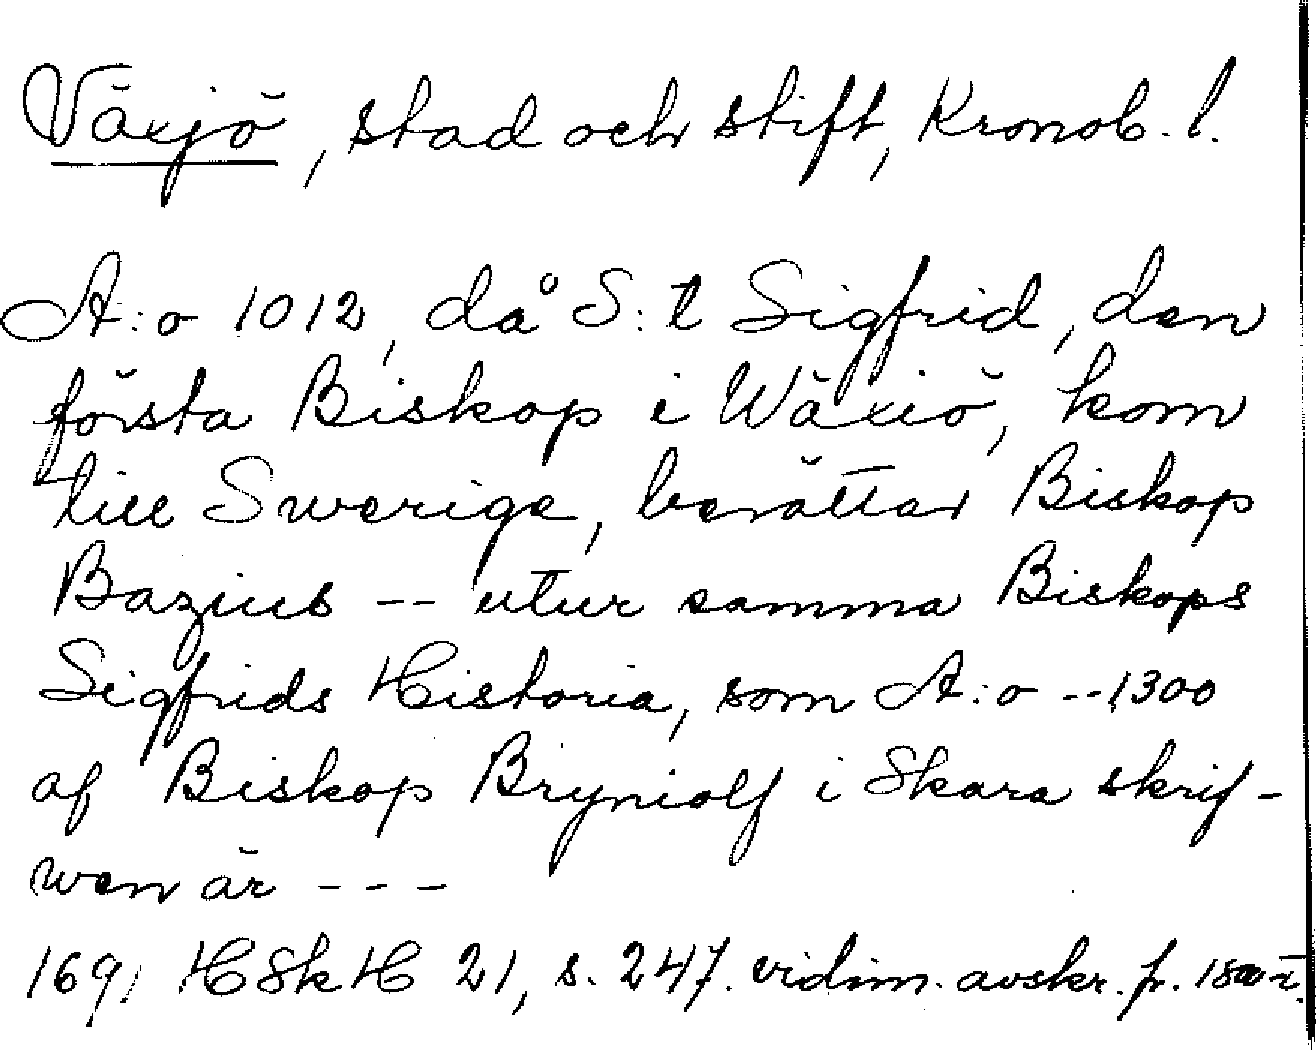 Växjö, stad och stift, Kronob. l.
A:o 1012, då S:t Sigfrid, den
första Biskop i Wäxiö, kom
till Swerige, berättar Biskop
Bazius -- utur samma Biskops
Sigfrids Historia, som A:o --1300
af Biskop Bryniolf i Skara skrif-
wen är ---
1691 HSkH 21, s. 247. vidim. avskr. fr.